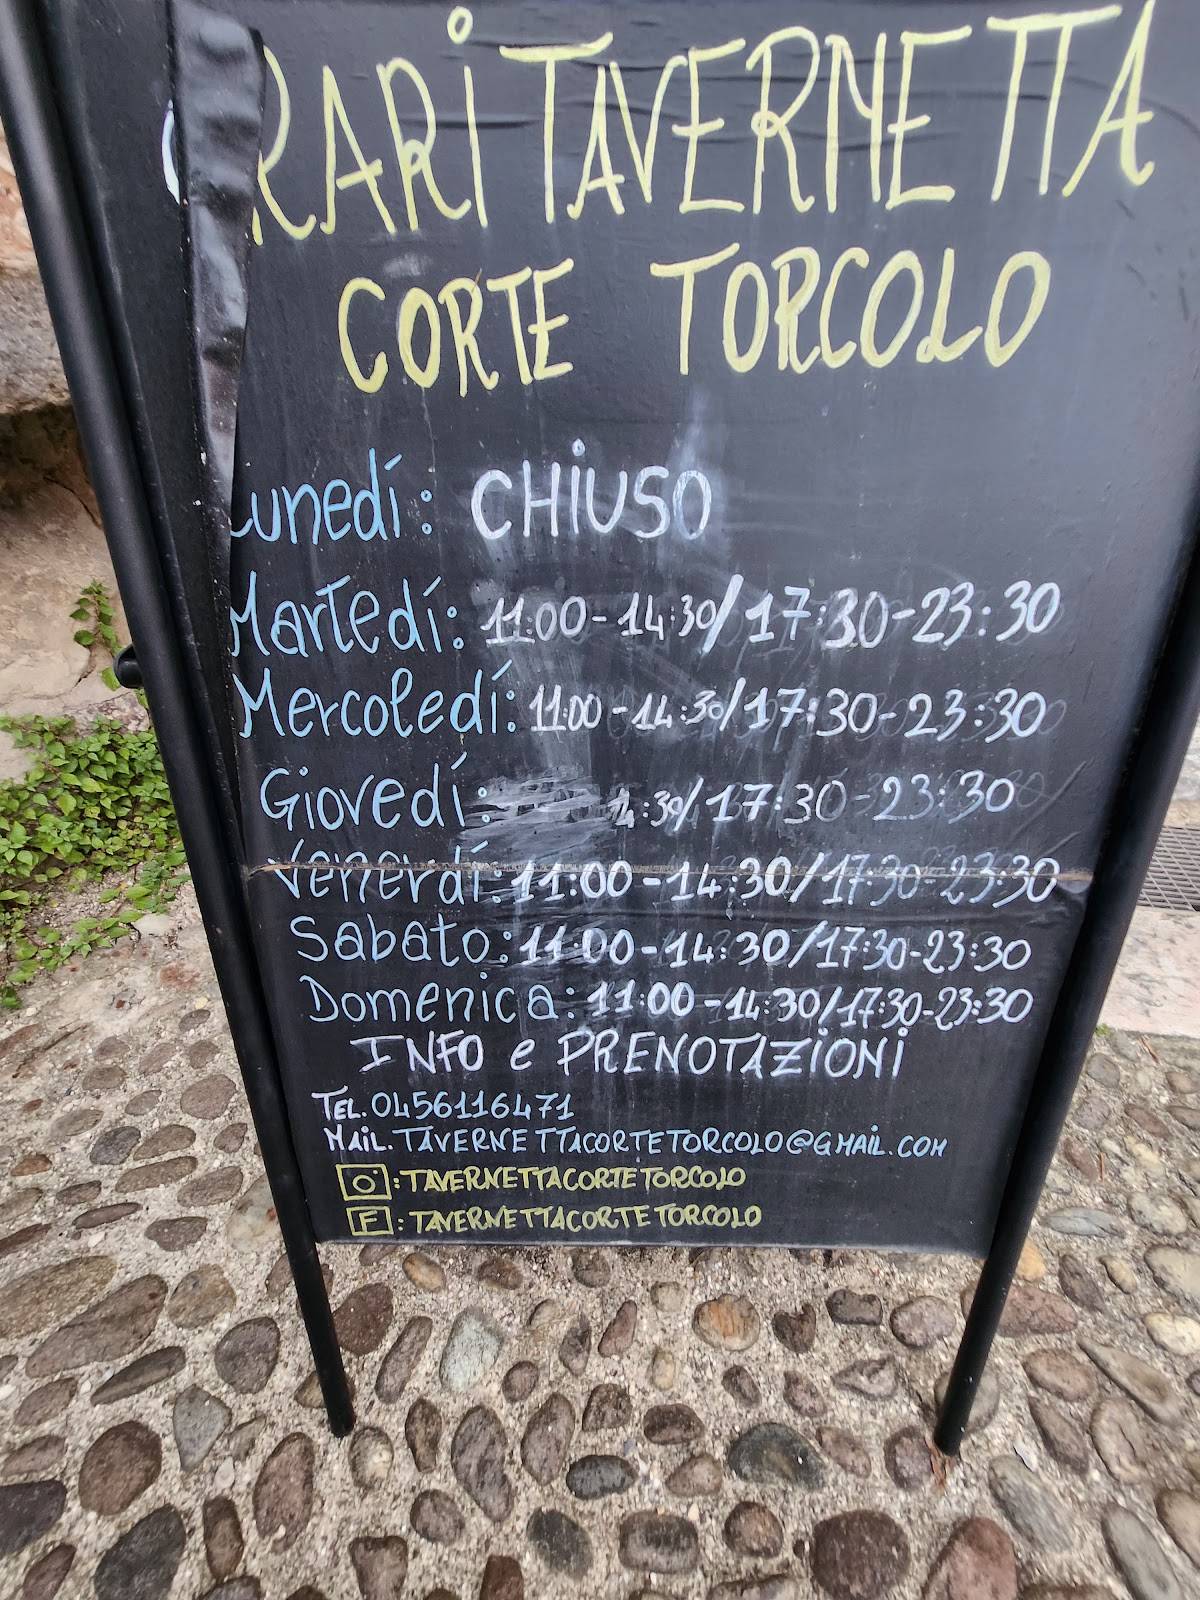 ORARI TAVERNETTA
CORTE TORCOLO
Lunedí: CHIUSO
Martedí: 11:00-14:30/17:30-23:30
Mercoledí: 11:00-14:30/17:30-23:30
Giovedí: 14:30/17:30-23:30
Venerdí: 11:00-14:30/17:30-23:30
Sabato: 11:00-14:30/17:30-23:30
Domenica: 11:00-14:30/17:30-23:30
INFO e PRENOTAZIONI
TEL. 0456116471
MAIL. TAVERNETTACORTETORCOLO@GMAIL.COM
: TAVERNETTACORTETORCOLO
F : TAVERNETTACORTETORCOLO